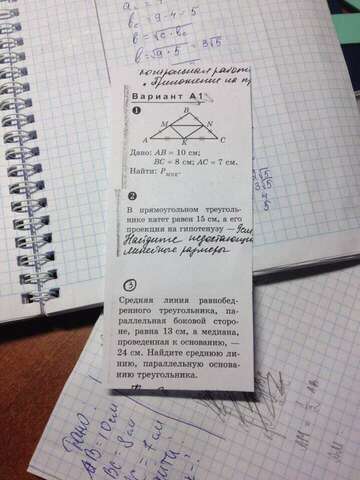 b_c = 9 - 4 = 5
b = √c · b_c
b = √9 · 5 = 3√5
контрольная работа
Вариант А1
1
B
M N
A K C
Дано: AB = 10 см;
BC = 8 см; AC = 7 см.
Найти: P_MNK.
2
В прямоугольном треуголь-
нике катет равен 15 см, а его
проекция на гипотенузу — 9см
Найдите недостающие
линейные размеры
3
Средняя линия равнобед-
ренного треугольника, па-
раллельная боковой сторо-
не, равна 13 см, а медиана,
проведенная к основанию, —
24 см. Найдите среднюю ли-
нию, параллельную основа-
нию треугольника.
2√5
3√5
4
5
Дано:
AB = 10 см
BC = 8 см
= 7 см